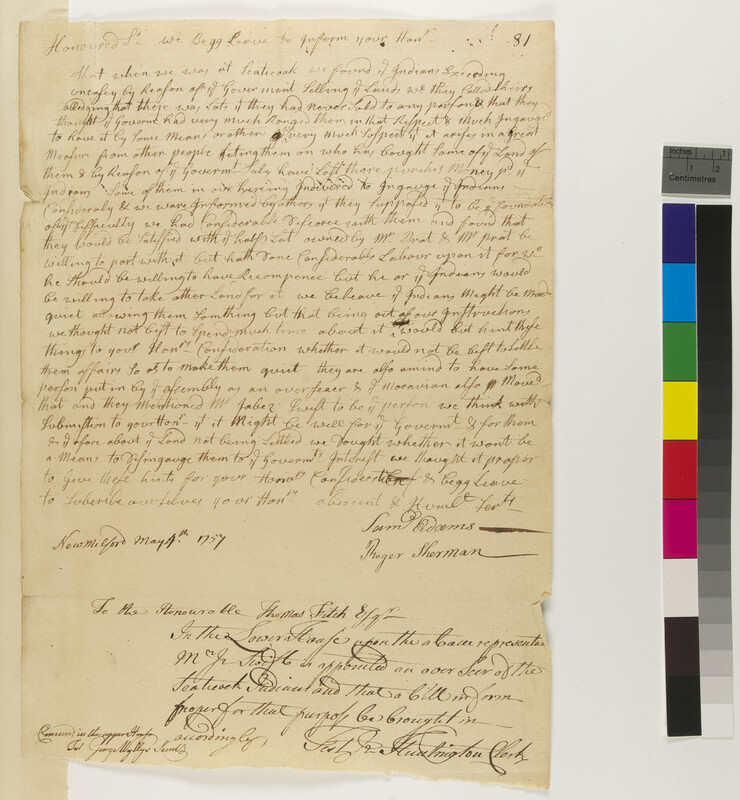 Honoured Sr we Begg Leave to Inform your Honr 81
That when we was at Scaticook we found ye Indians Exceeding
uneasey by Reason of ye Goverment Selling ye Lands wc they Called theirs
alledging that these was Lots yt they had never Sold to any person & that they
thought ye Govermt had very much Ronged them in that Respect & much Ingaged
to have it by Some Means or other very much Sospect yt it arises in a Great
Measure from other people Seting them on who has bought Some of ye Land of
them & by Reason of ye Governm have Lost there purchas Money pd ye
Indians Some of them in our hereing Indevered to Ingauge ye Indians
Considerabley & we were Informed by others yt they Supposed it to be ye Foundation
of ye Difficulty we had Considerable Discorce with them and found that
they would be Satisfied with ye half Lot owned by Mr Prat & Mr prat be
willing to part with it but hath Done Considerable Labour upon it for wch
he Should be willing to have Recompence but he or ye Indians would
be willing to take other Land for it we beleave ye Indians Might be Made
quiet allowing them Somthing but that being out of our Instructions
we thought not best to Spend much time about it would but hint these
things to your Honrs Consideration whether it would not be best to Settle
them affairs So as to make them quiet they are also amind to have Some
person put in by ye assembly as an overseaer & ye Moravian also Moved
that and they Mentioned Mr Jabez Swift to be ye person we think with
Submission to your Honr yt it Might be well for ye Governmt & for them
& ye afore about ye Land not being Settled we Dought whether it wont be
a Means to Disingauge them to ye Governmts Interest we thought it proper
to Give these hints for your Honrs Consideration & Begg Leave
to Subscribe ourselves your Honrs obedient & Humbl Servts
Saml Adams
Roger Sherman
New Milford May 4th 1757
To the Honourable Thomas Fitch Esqr
In the Lower House upon the above representation
Mr Jz Swift is appointed an over Seer of the
Scaticook Indians and that a bill in form
proper for that purpose be brought in
accordingly Test Jz Huntington Clerk
Concurrd in the upper House
Test George Wyllys Secretr
Inches 1 2
Centimetres